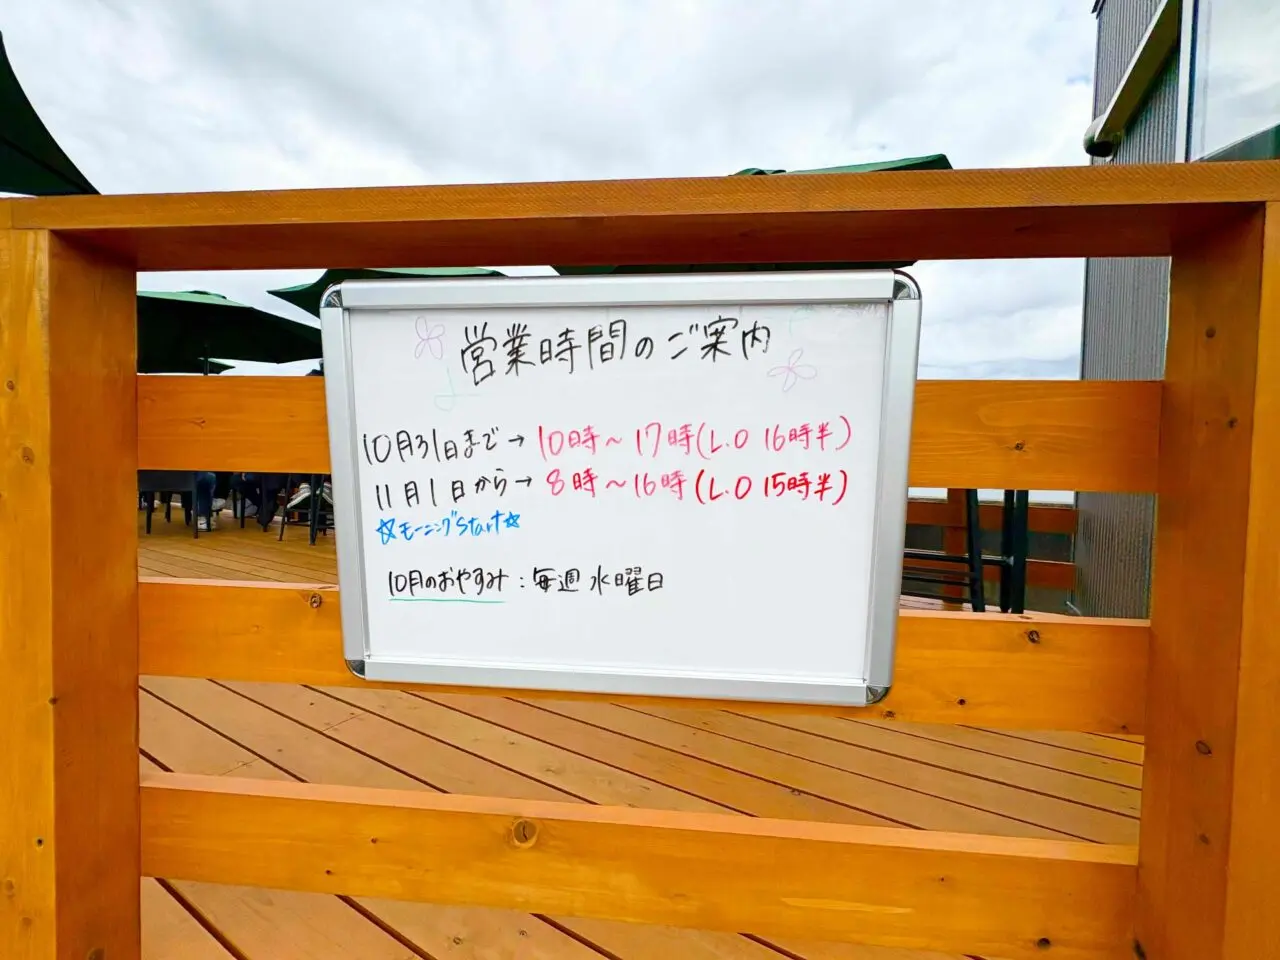 営業時間のご案内
10月31日まで→10時～17時(L.O 16時半)
11月1日から→8時～16時(L.O 15時半)
☆モーニングStart☆
10月のおやすみ:毎週 水曜日